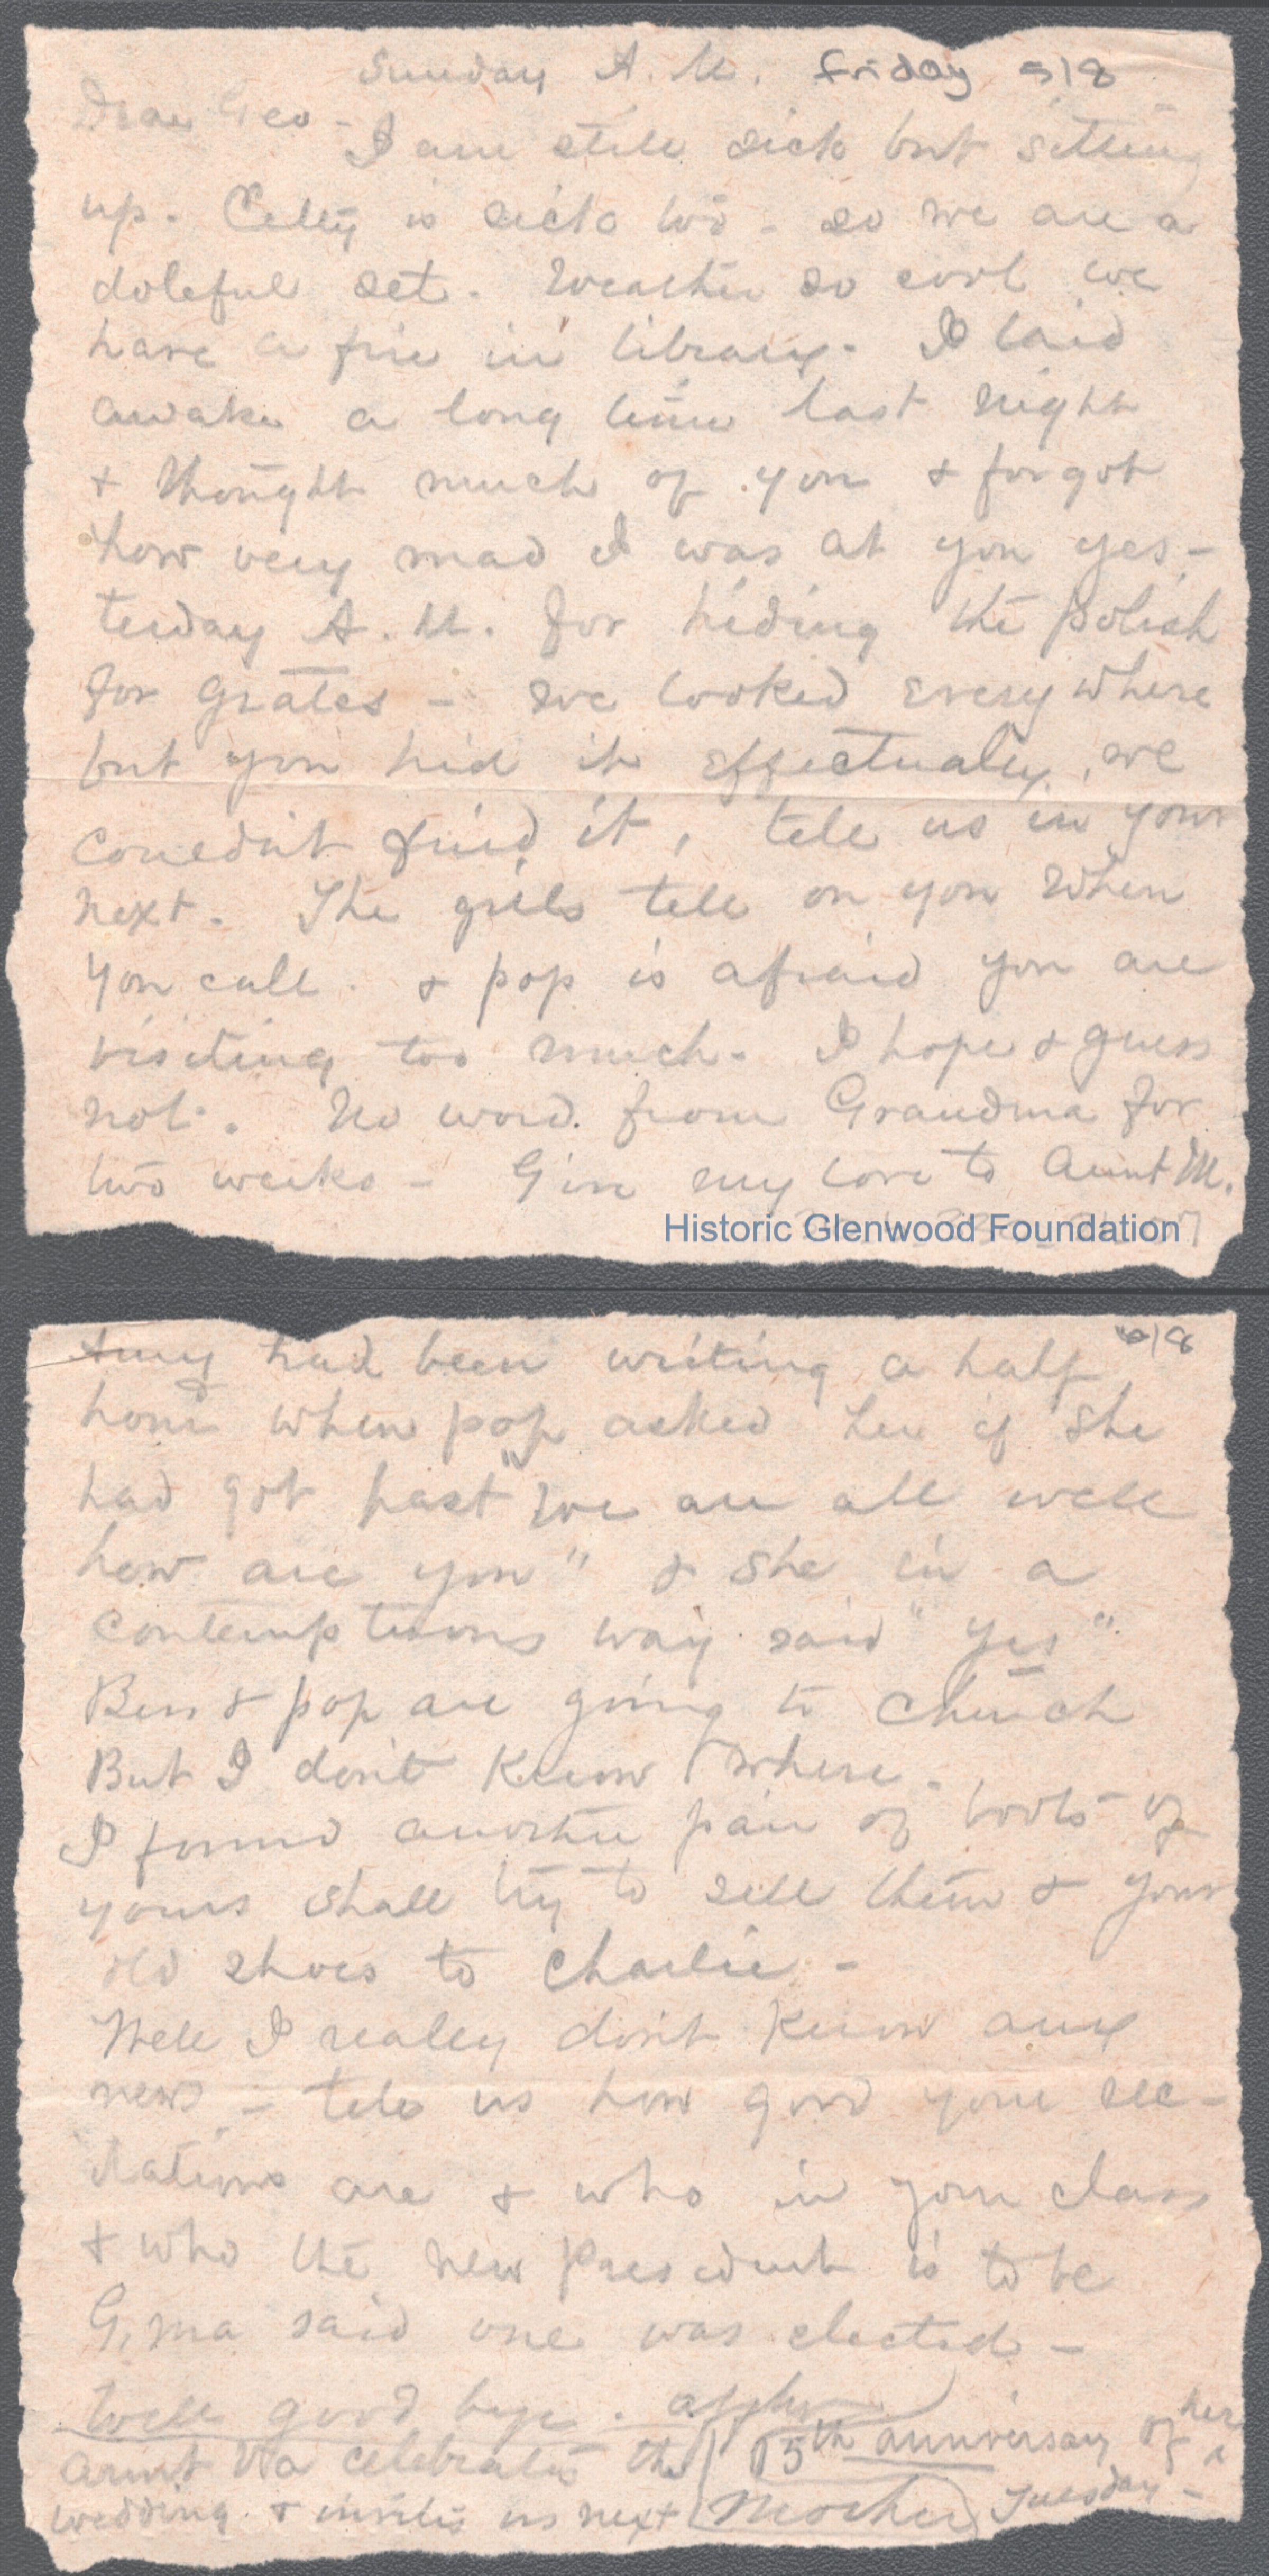 Sunday A.M. friday 5/8
Dear Geo -
I am still sick but sitting
up. Celey is sick too - so we are a
doleful set. Weather so cool we
have a fire in library. I laid
awake a long time last night
& thought much of you & forgot
how very mad I was at you yes-
terday A.M. for hiding the polish
for grates - We looked everywhere
but you hid it effectually, we
couldn't find it, tell us in your
next. The girls tell on you when
you call. & pop is afraid you are
visiting too much. I hope & guess
not. No word from Grandma for
two weeks - Give my love to Aunt M.
Historic Glenwood Foundation
Amy had been writing a half
hour when pop asked her if she
had got past "We are all well
how are you" & she in a
contemptuous way said "yes"
Bess & pop are going to church
But I don't know where.
I found another pair of boots of
yours shall try to sell them & your
old shoes to Charlie -
Well I really don't know any
news - tell us how good your rec-
itations are & who in your class
& who the new President is to be
G.ma said one was elected -
Well good bye. affly
Mother
Aunt celebrates the 15th anniversary of her
wedding & invites us next Tuesday -